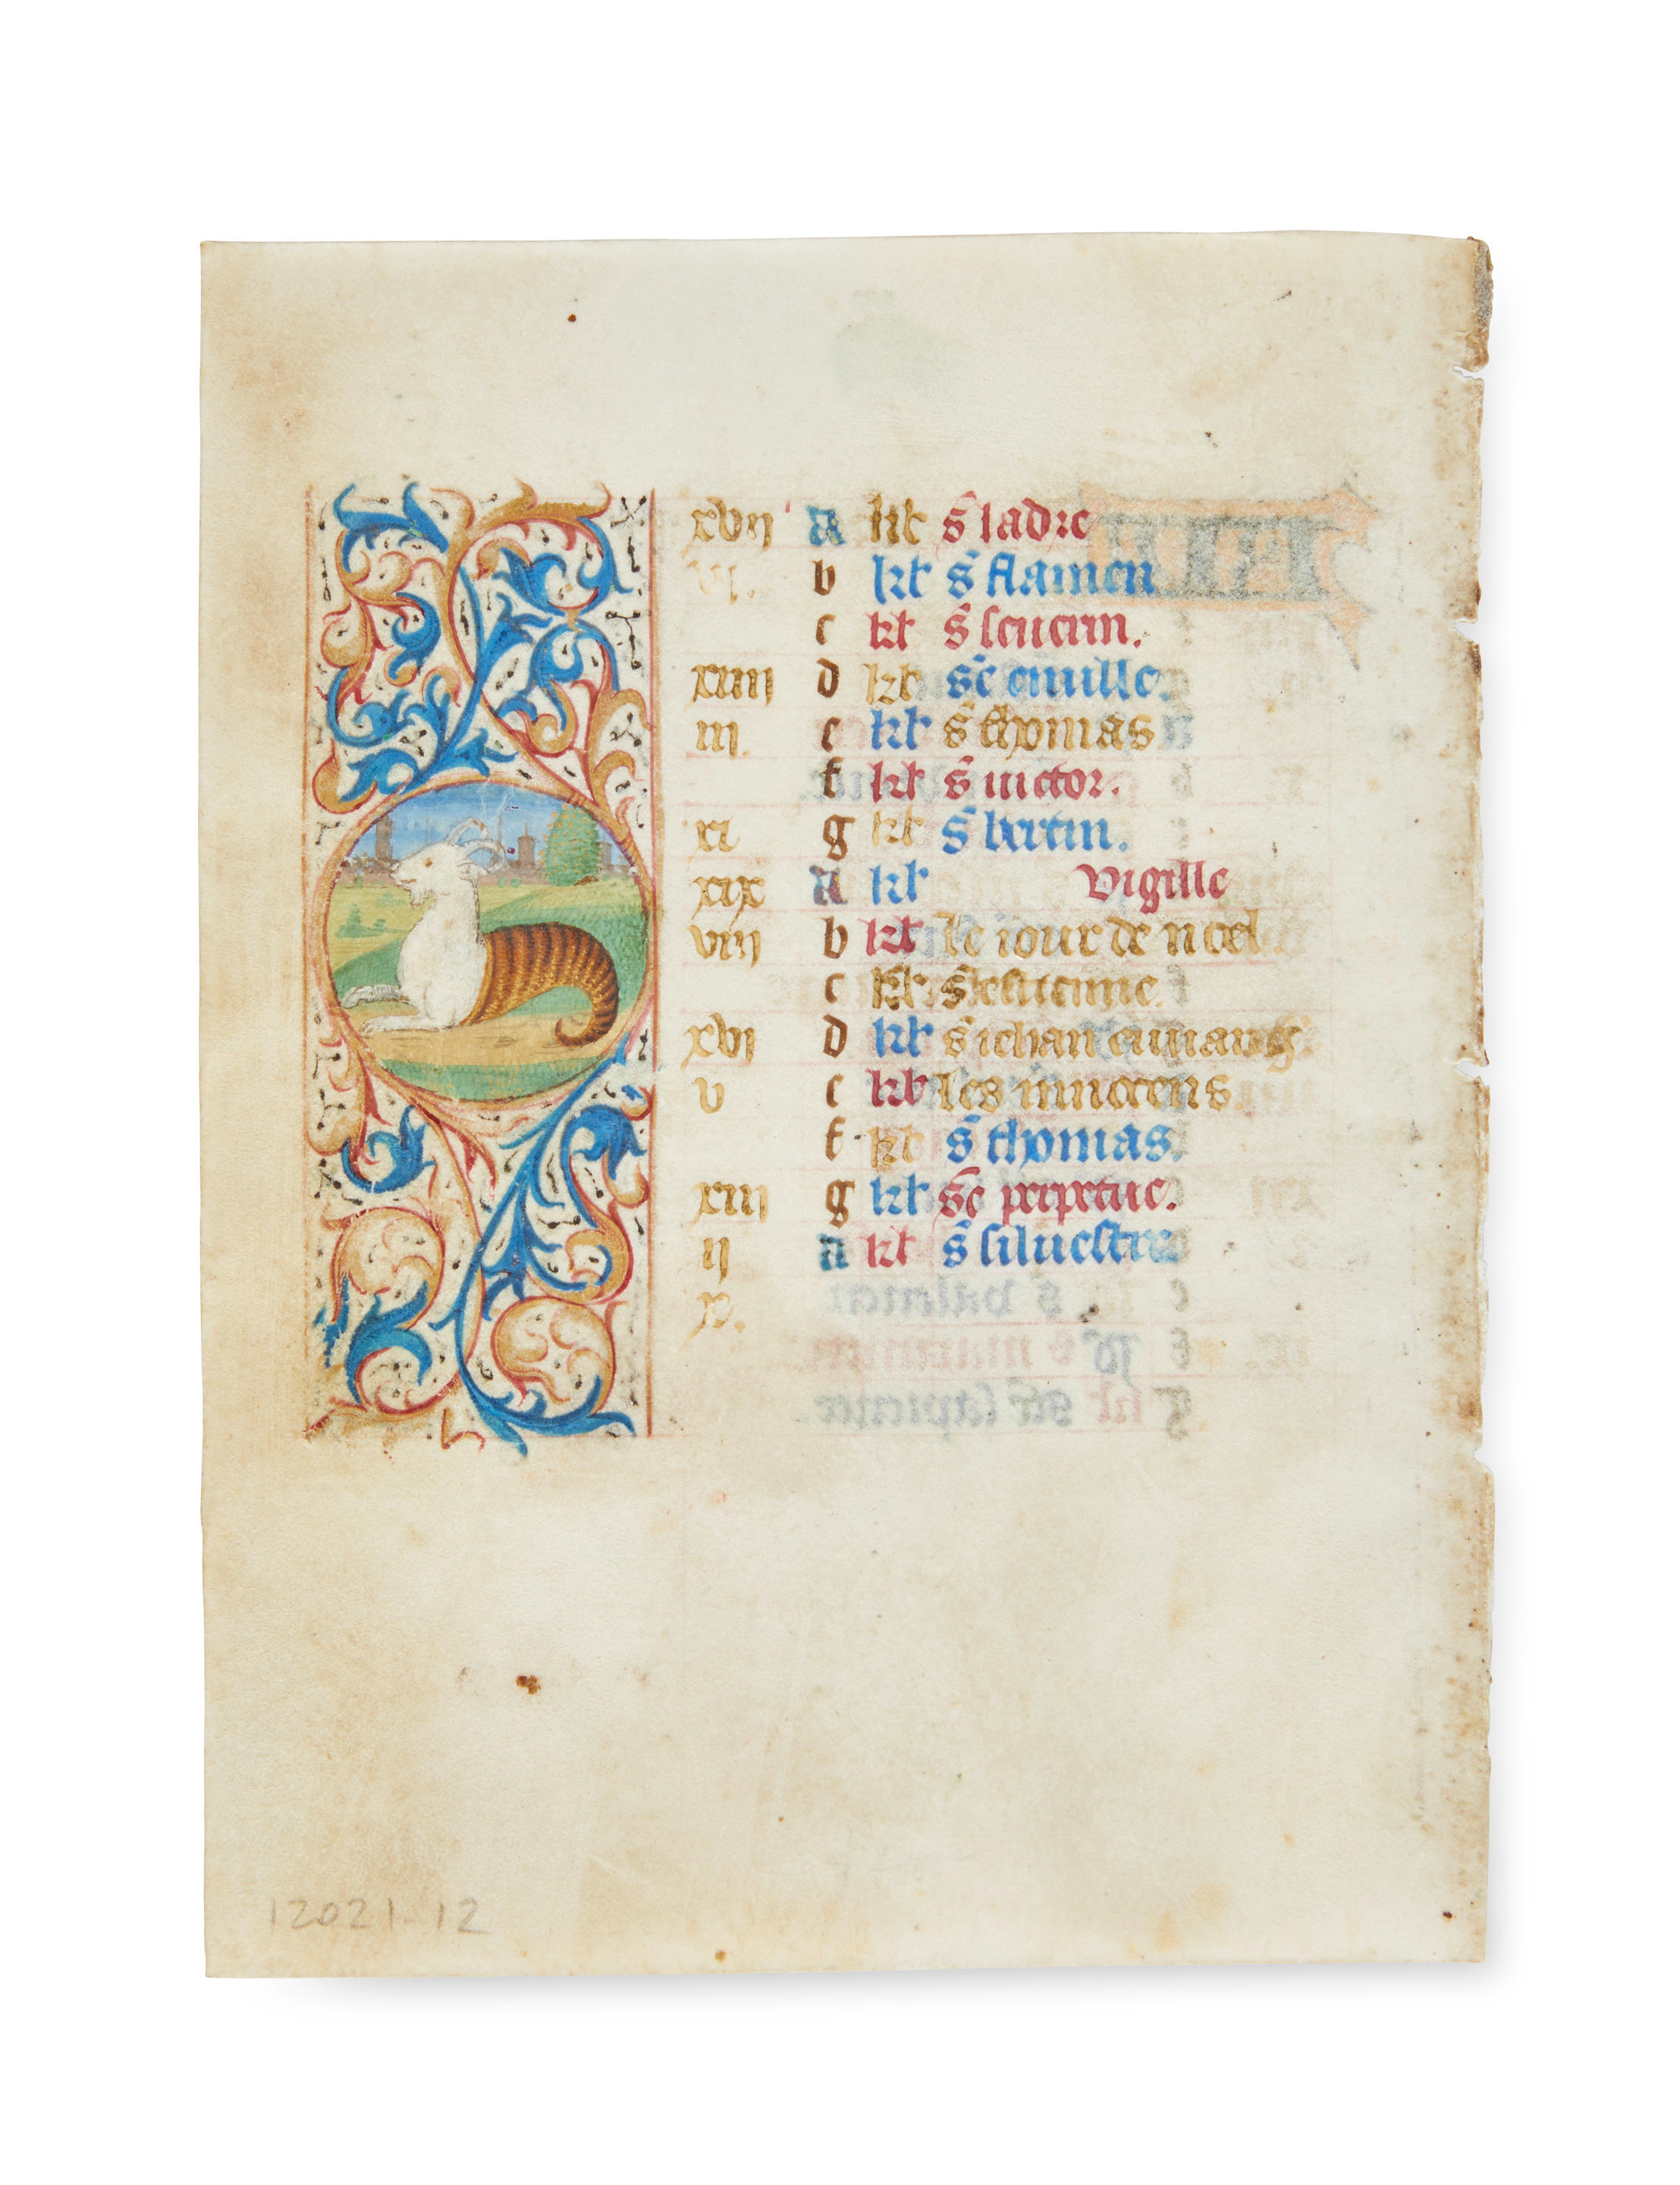 xvij a kł s̄ ladre
vi. b kł s̄ flamen
c kł s̄ seuerin.
xiiij d kł sē emille.
iij. e kł s̄ thomas
f kł s̄ victor.
xi g kł s̄ bertin.
xix a kł vigille
viij b kł le iour de noel
c kł s̄ estienne
xvij d kł s̄ iehan
v e kł les innocens.
f kł s̄ thomas.
xiij g kł sē perpetue.
ij a kł s̄ siluestre
x.
12021-12